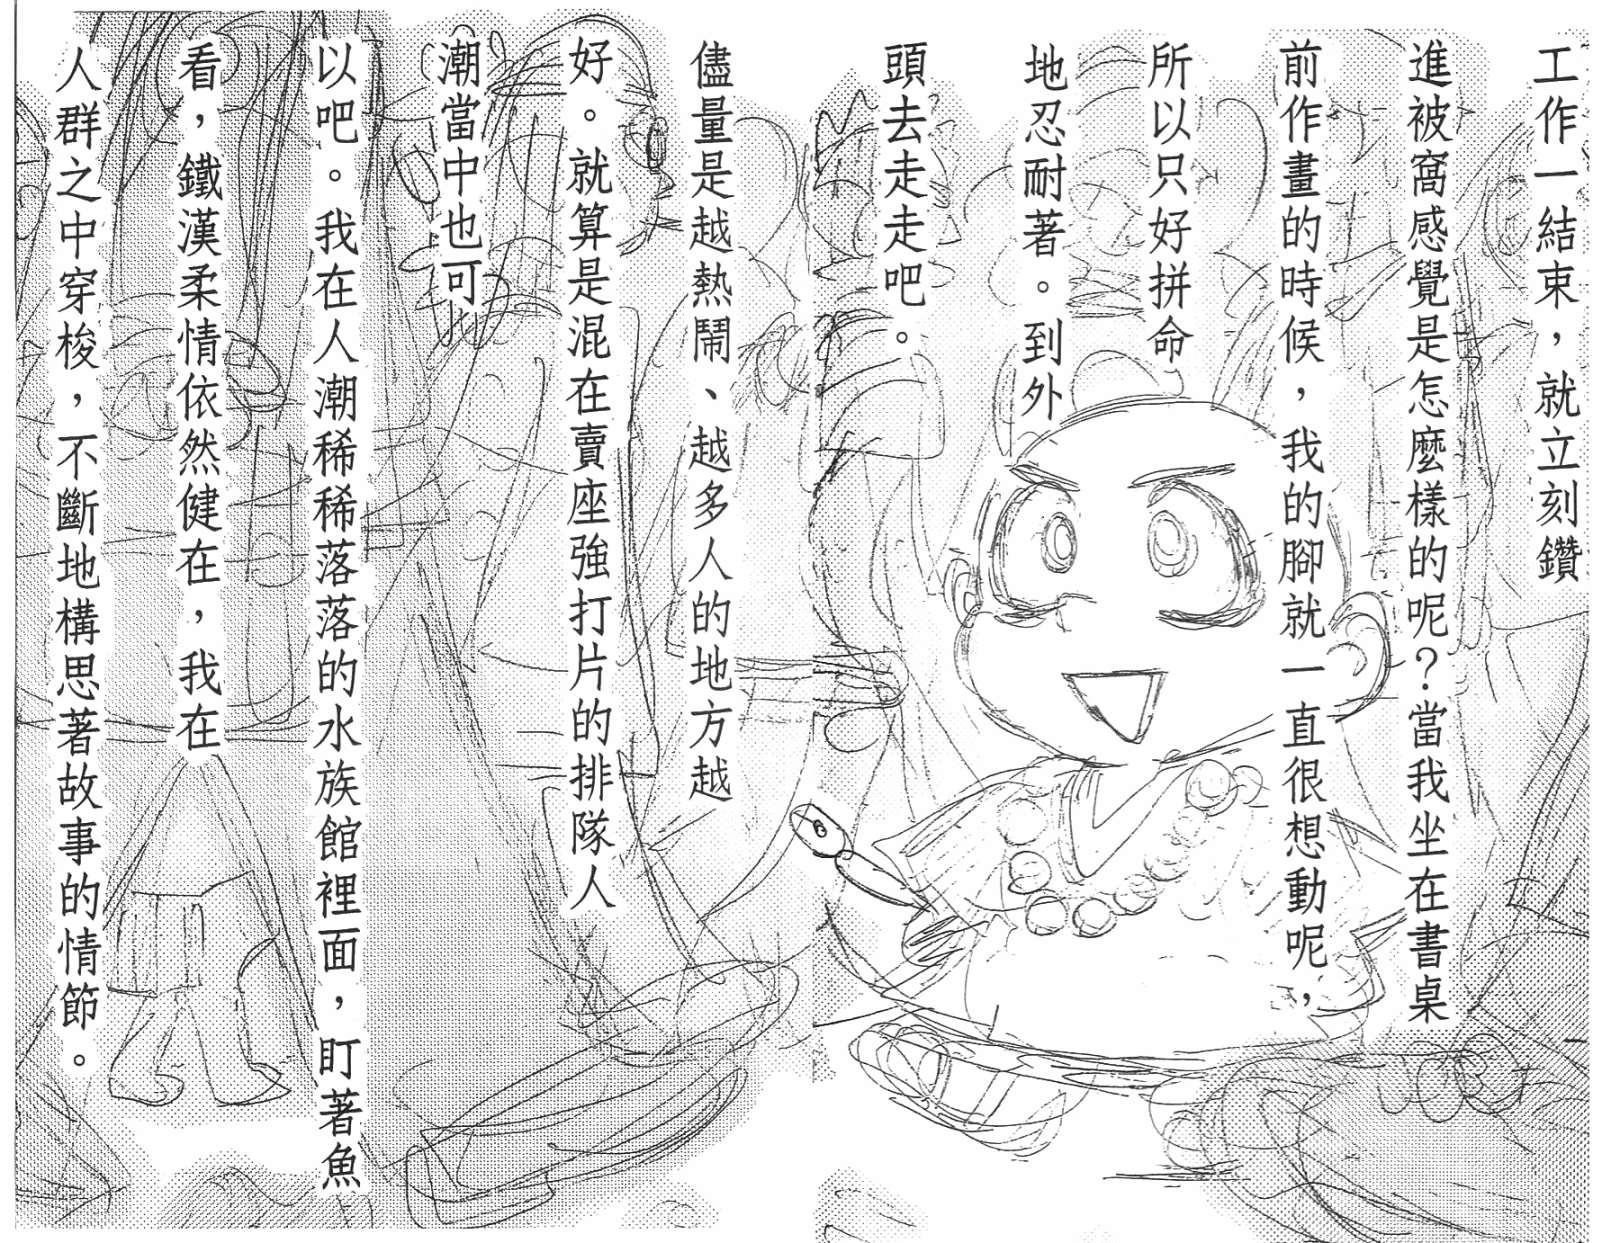 工作一結束，就立刻鑽
進被窩感覺是怎麼樣的呢？當我坐在書桌
前作畫的時候，我的腳就一直很想動呢，
所以只好拼命
地忍耐著。到外
頭去走走吧。
儘量是越熱鬧、越多人的地方越
好。就算是混在賣座強打片的排隊人
潮當中也可
以吧。我在人潮稀稀落落的水族館裡面，盯著魚
看，鐵漢柔情依然健在，我在
人群之中穿梭，不斷地構思著故事的情節。